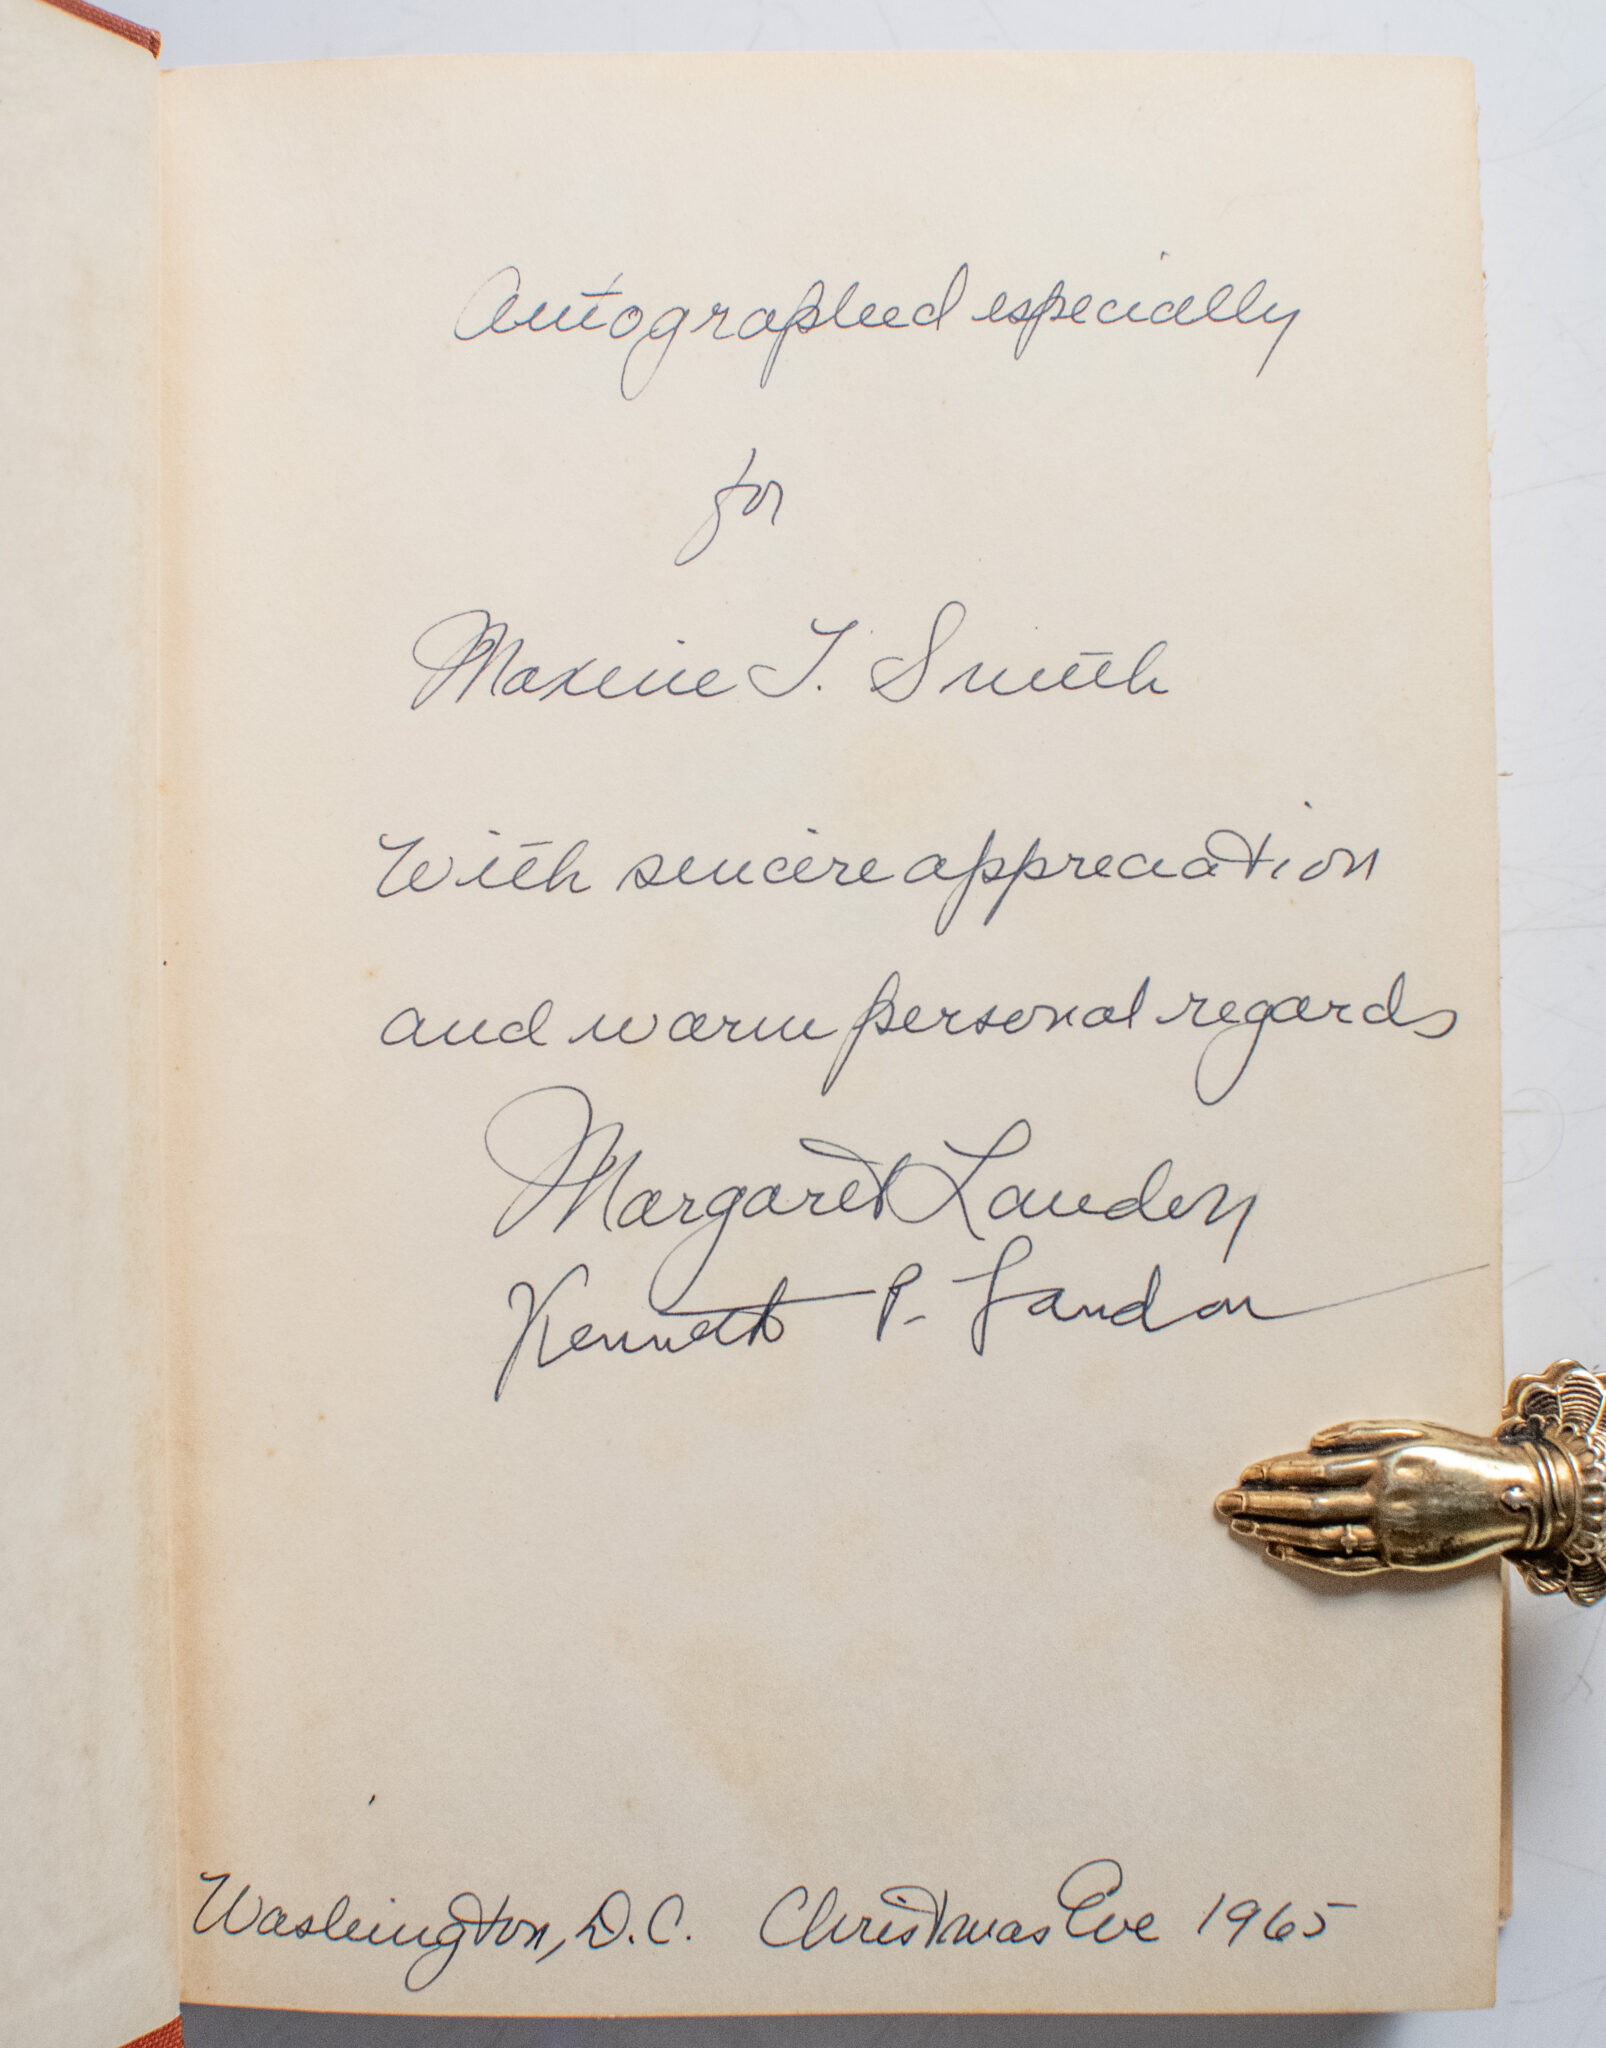 Autographed especially
for
Maxine T. Smith
With sincere appreciation
and warm personal regards
Margaret Landon
Kenneth P. Landon
Washington, D.C. Christmas Eve 1965